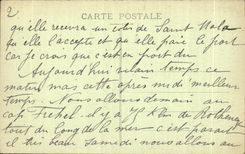 2
CARTE POSTALE
qu'elle recevra un colis de Saint Malo
qu'elle l'accepte et qu'elle paie le port
car je crois que c'est en port du
Aujourd'hui vilain temps ce
matin mais cette après midi meilleur
temps. Nous allons demain au
cap Fréhel il y a 18 k. de
tout du long de la mer c'est parait
il très beau Samedi nous allons au